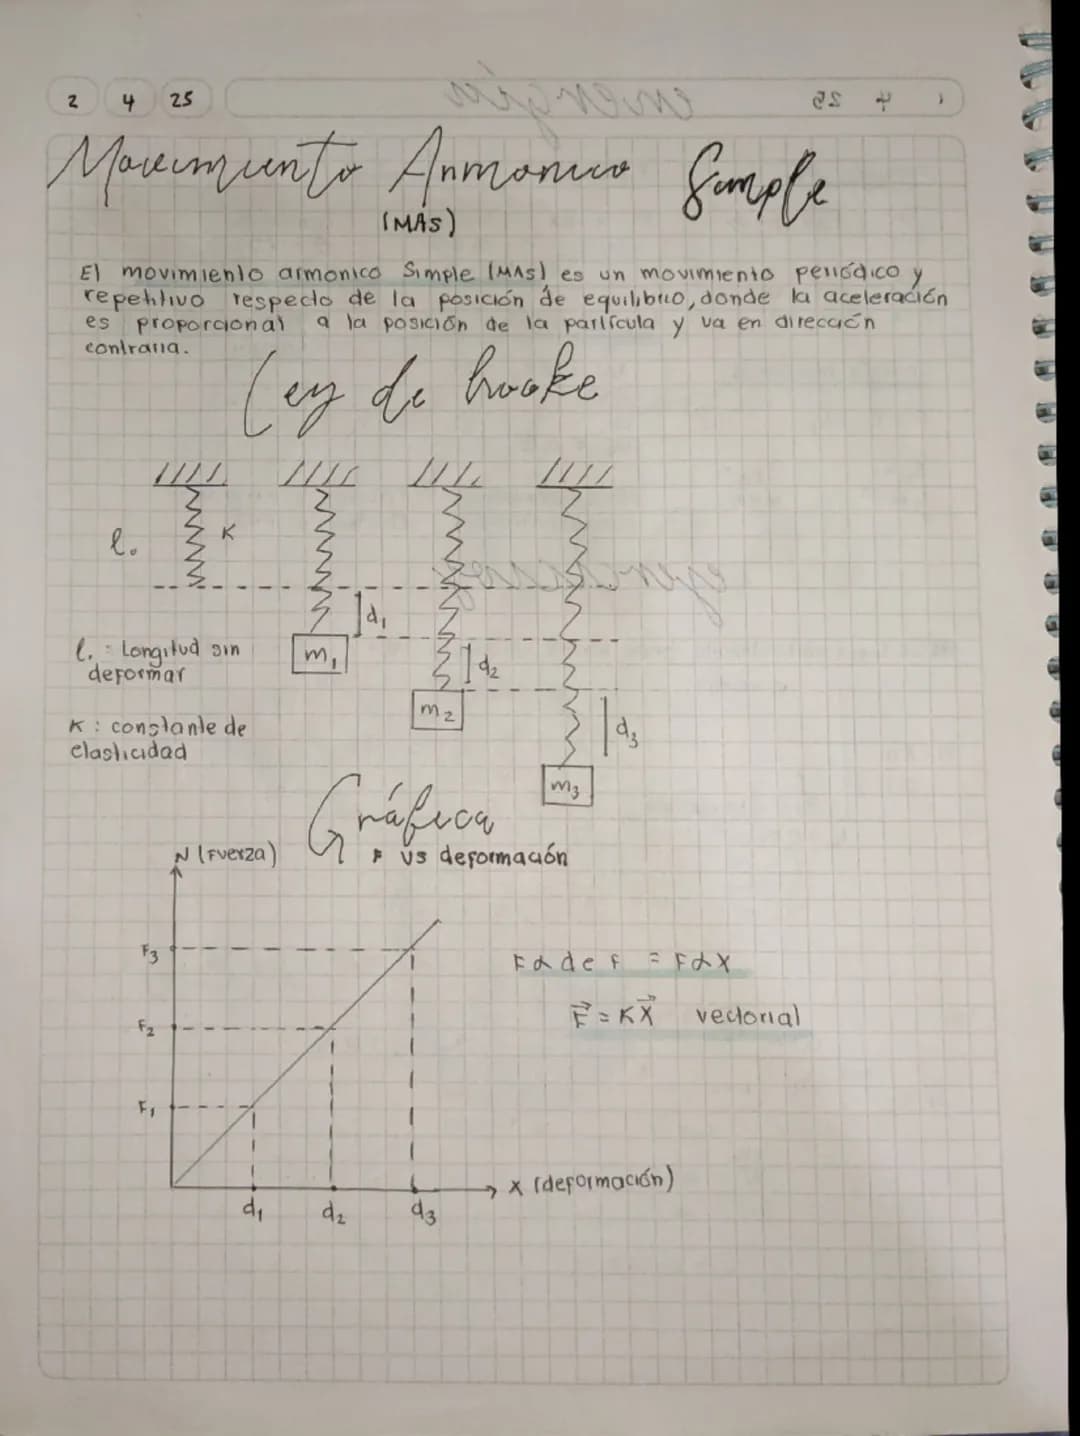 2 4 25
Movimiento Armonico Simple
(MAS)
El movimiento armonico Simple (MAS) es un movimiento periódico y
repetitivo respecto de la posición de equilibrio, donde la aceleración
es proporcional a la posición de la partícula y va en dirección
contraria.
Ley de hooke
l₀ K
d₁
l₀ = Longitud sin
deformar
m₁
d₂
m₂
K : constante de
elasticidad
d₃
m₃
Gráfica
F vs deformación
N (Fuerza)
F₃
F α def = F α X
F⃗ = K X⃗ vectorial
F₂
F₁
X (deformación)
d₁ d₂ d₃